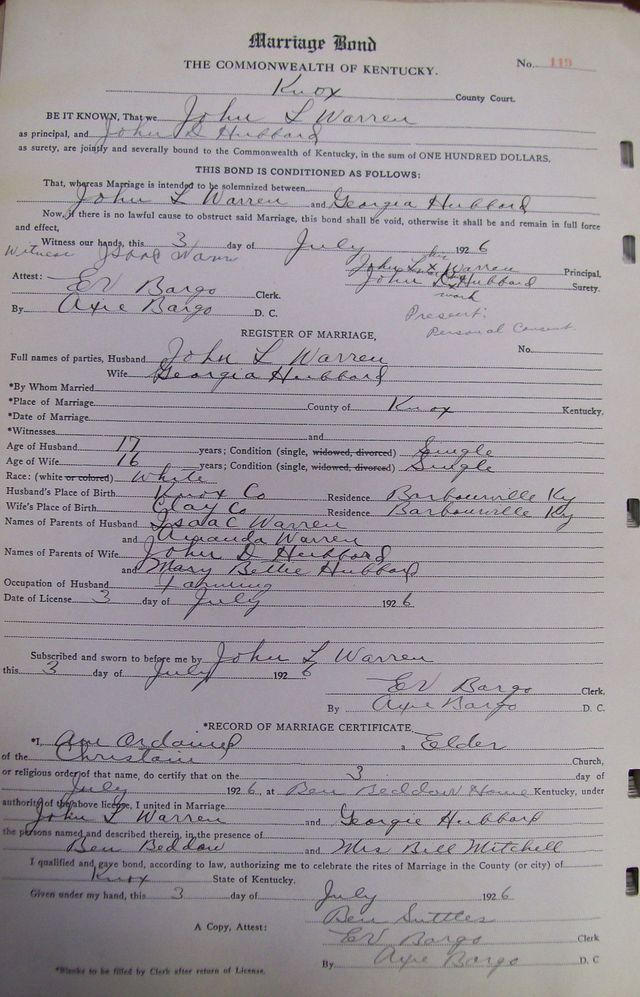 Marriage Bond
THE COMMONWEALTH OF KENTUCKY.
No. 119
Knox County Court.
BE IT KNOWN, That we John L Warren
as principal, and John D Hubbard
as surety, are jointly and severally bound to the Commonwealth of Kentucky, in the sum of ONE HUNDRED DOLLARS,
THIS BOND IS CONDITIONED AS FOLLOWS:
That, whereas Marriage is intended to be solemnized between
John L Warren and Georgia Hubbard
Now, if there is no lawful cause to obstruct said Marriage, this bond shall be void, otherwise it shall be and remain in full force
and effect,
Witness our hands, this 3 day of July 1926
Witness Isaac Warren
his
John L X Warren Principal,
John D Hubbard Surety.
mark
Attest: EV Bargo Clerk.
By Axie Bargo D. C.
Present:
Personal Consent
REGISTER OF MARRIAGE,
No.
Full names of parties, Husband John L Warren
Wife Georgia Hubbard
*By Whom Married
*Place of Marriage County of Knox Kentucky.
*Date of Marriage
*Witnesses and
Age of Husband 17 years; Condition (single, widowed, divorced) Single
Age of Wife 16 years; Condition (single, widowed, divorced) Single
Race: (white or colored) White
Husband's Place of Birth Knox Co Residence Barbourville Ky
Wife's Place of Birth Clay Co Residence Barbourville Ky
Names of Parents of Husband Isaac Warren
and Amanda Warren
Names of Parents of Wife John D Hubbard
and Mary Bettie Hubbard
Occupation of Husband Farming
Date of License 3 day of July 1926
Subscribed and sworn to before me by John L Warren
this 3 day of July 1926
EV Bargo Clerk,
By Axie Bargo D. C.
*RECORD OF MARRIAGE CERTIFICATE.
*I, Am Ordained, Elder
of the Christain Church,
or religious order of that name, do certify that on the 3 day of
July 1926, at Ben Beddow Home Kentucky, under
authority of the above license, I united in Marriage
John L Warren and Georgie Hubbard
the persons named and described therein, in the presence of
Ben Beddow and Mrs Bill Mitchell
I qualified and gave bond, according to law, authorizing me to celebrate the rites of Marriage in the County (or city) of
Knox State of Kentucky.
Given under my hand, this 3 day of July 1926
Ben Suttles
A Copy, Attest: EV Bargo Clerk
By Axie Bargo D. C
*Blanks to be filled by Clerk after return of License.